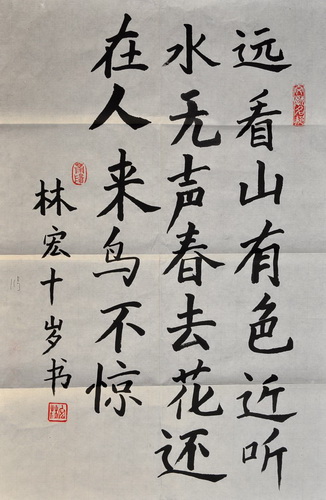 远看山有色近听
水无声春去花还
在人来鸟不惊
林宏十岁书